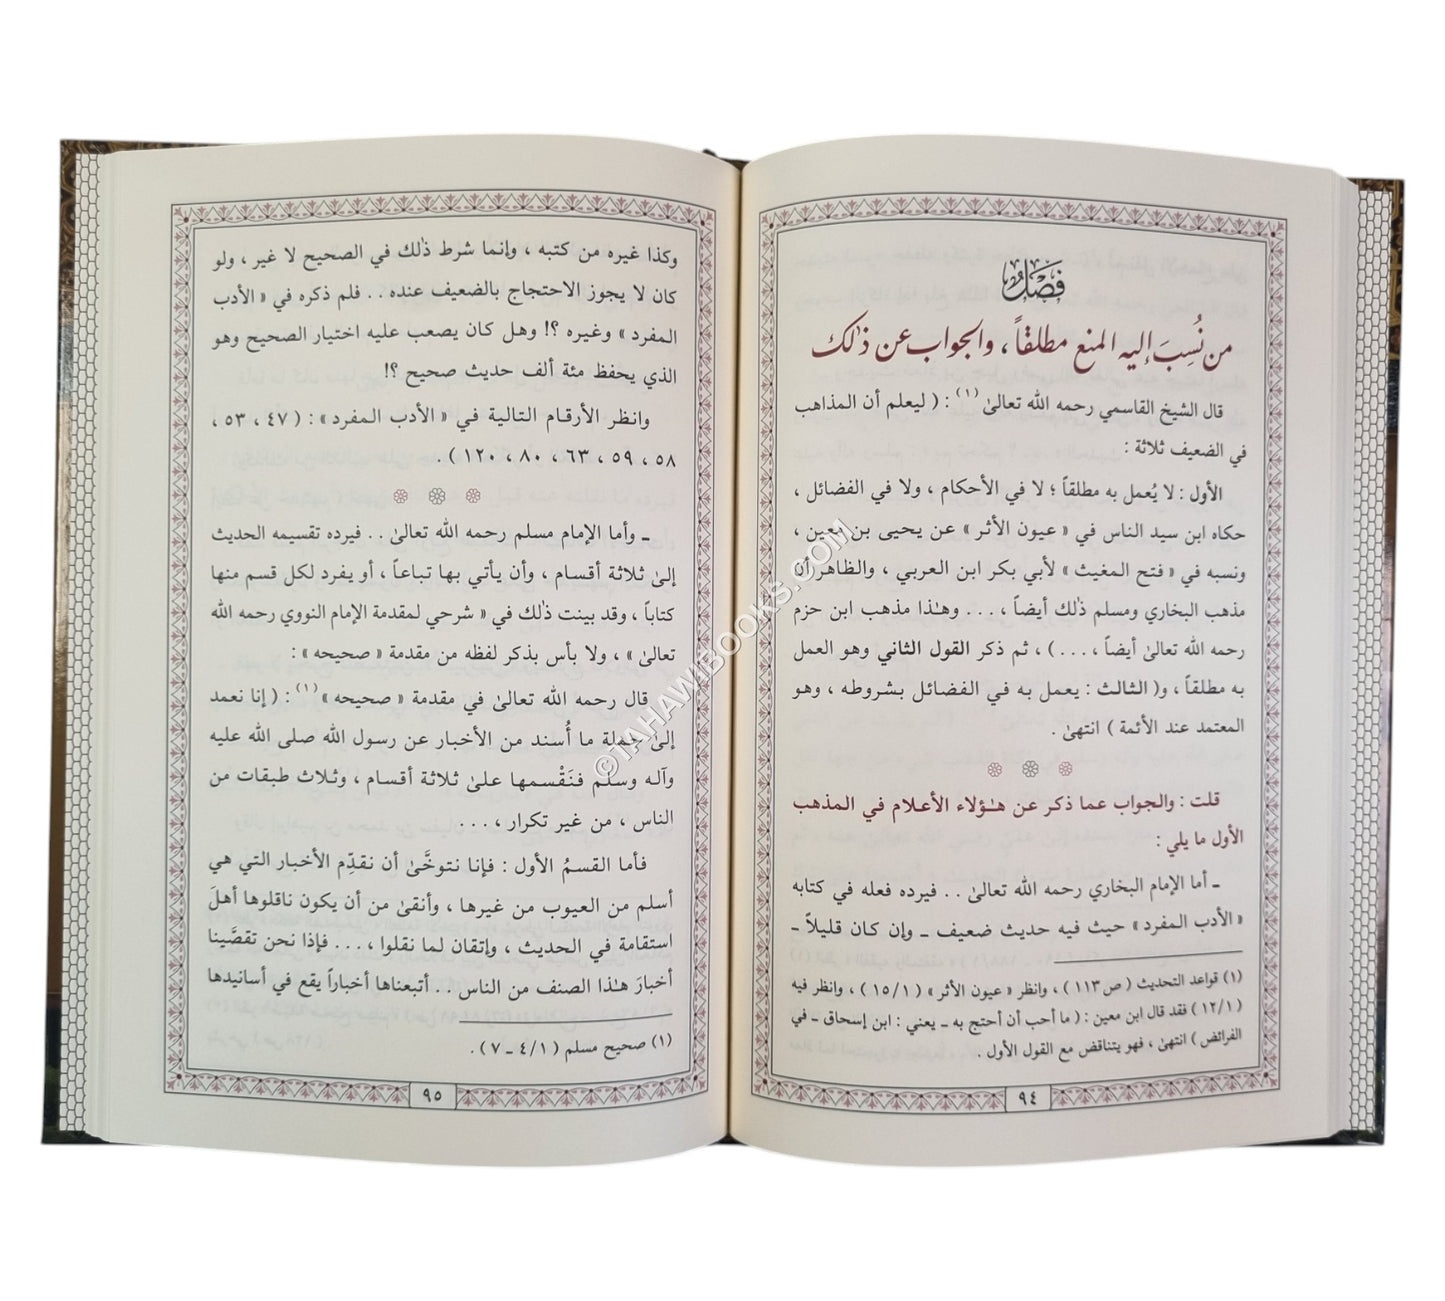 فَصْلٌ
من نُسِبَ إليه المنع مطلقاً ، والجواب عن ذٰلك
قال الشيخ القاسمي رحمه الله تعالىٰ (١) : ( ليعلم أن المذاهب
في الضعيف ثلاثة :
الأول : لا يُعمل به مطلقاً ؛ لا في الأحكام ، ولا في الفضائل ،
حكاه ابن سيد الناس في « عيون الأثر » عن يحيى بن معين ،
ونسبه في « فتح المغيث » لأبي بكر ابن العربي ، والظاهر أن
مذهب البخاري ومسلم ذٰلك أيضاً ، . . . وهـٰذا مذهب ابن حزم
رحمه الله تعالىٰ أيضاً ، . . . ) ، ثم ذكر القول الثاني وهو العمل
به مطلقاً ، و( الثالث : يعمل به في الفضائل بشروطه ، وهو
المعتمد عند الأئمة ) انتهىٰ .
قلت : والجواب عما ذكر عن هـٰؤلاء الأعلام في المذهب
الأول ما يلي :
ـ أما الإمام البخاري رحمه الله تعالىٰ . . فيرده فعله في كتابه
« الأدب المفرد » حيث فيه حديث ضعيف ـ وإن كان قليلاً ـ
(١) قواعد التحديث ( ص ١١٣ ) ، وانظر « عيون الأثر » ( ١/ ١٥ ) ، وانظر فيه
( ١/ ١٢ ) فقد قال ابن معين : ( ما أحب أن أحتج به ـ يعني : ابن إسحاق ـ في
الفرائض ) انتهىٰ ، فهو يتناقض مع القول الأول .
٩٤
وكذا غيره من كتبه ، وإنما شرط ذٰلك في الصحيح لا غير ، ولو
كان لا يجوز الاحتجاج بالضعيف عنده . . فلم ذكره في « الأدب
المفرد » وغيره ؟! وهل كان يصعب عليه اختيار الصحيح وهو
الذي يحفظ مئة ألف حديث صحيح ؟!
وانظر الأرقام التالية في « الأدب المفرد » : ( ٤٧ ، ٥٣ ،
٥٨ ، ٥٩ ، ٦٣ ، ٨٠ ، ١٢٠ ) .
ـ وأما الإمام مسلم رحمه الله تعالىٰ . . فيرده تقسيمه الحديث
إلىٰ ثلاثة أقسام ، وأن يأتي بها تباعاً ، أو يفرد لكل قسم منها
كتاباً ، وقد بينت ذٰلك في « شرحي لمقدمة الإمام النووي رحمه الله
تعالىٰ » ، ولا بأس بذكر لفظه من مقدمة « صحيحه » :
قال رحمه الله تعالىٰ في مقدمة « صحيحه » (١) : ( إنا نعمد
إلىٰ جملة ما أُسند من الأخبار عن رسول الله صلى الله عليه
وآله وسلم فنَقْسمها علىٰ ثلاثة أقسام ، وثلاث طبقات من
الناس ، من غير تكرار ، . . .
فأما القسمُ الأول : فإنا نتوخَّىٰ أن نقدِّم الأخبار التي هي
أسلم من العيوب من غيرها ، وأنقىٰ من أن يكون ناقلوها أهلَ
استقامة في الحديث ، وإتقان لما نقلوا ، . . . فإذا نحن تقصَّينا
أخبارَ هـٰذا الصنف من الناس . . أتبعناها أخباراً يقع في أسانيدها
(١) صحيح مسلم ( ١/ ٤ ـ ٧ ) .
٩٥
©TAHAWIBOOKS.COM